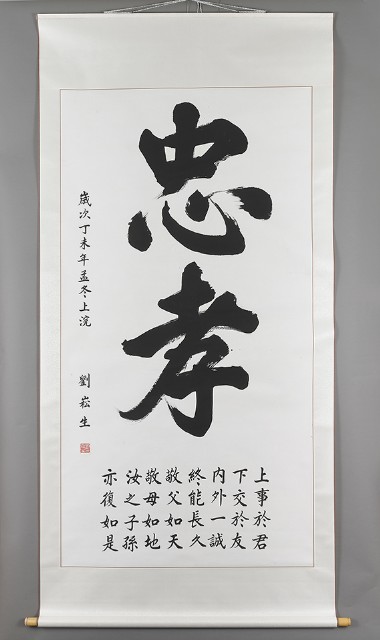 忠孝
上事於君
下交於友
内外一誠
終能長久
敬父如天
敬母如地
汝之子孫
亦復如是
歳次丁未年孟冬上浣
劉崧生